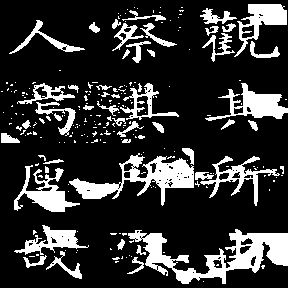 觀其所由
察其所安
人焉廋哉